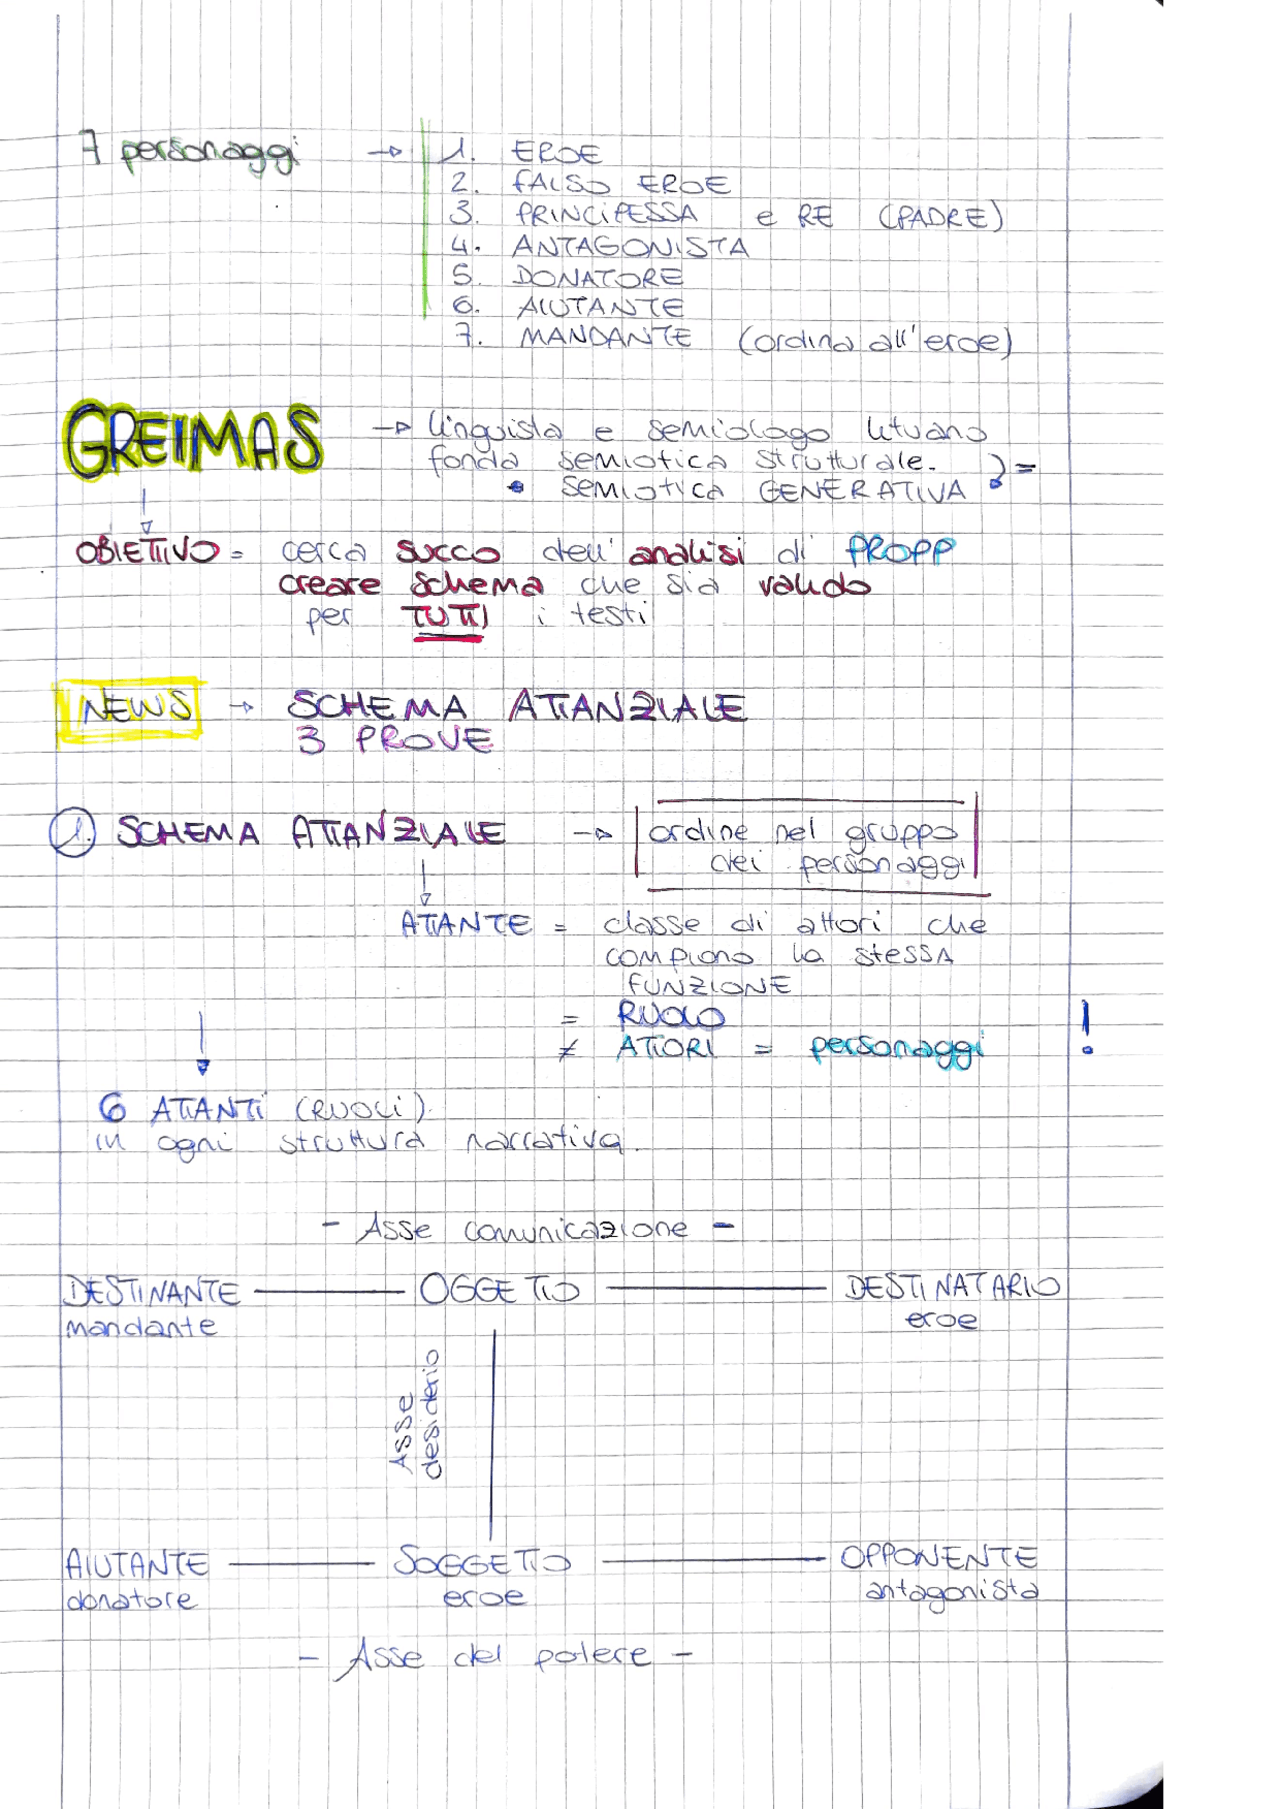 7 personaggi → 1. EROE
2. FALSO EROE
3. PRINCIPESSA e RE (PADRE)
4. ANTAGONISTA
5. DONATORE
6. AIUTANTE
7. MANDANTE (ordina all'eroe)
GREIMAS → linguista e semiologo lituano
fonda semiotica strutturale.
• semiotica GENERATIVA ?=
OBIETTIVO = cerca succo dell'analisi di PROPP
creare schema che sia valido
per TUTTI i testi
NEWS → SCHEMA ATTANZIALE
3 PROVE
1. SCHEMA ATTANZIALE → ordine nel gruppo
dei personaggi
ATTANTE = classe di attori che
compiono la stessa
FUNZIONE
= RUOLO
≠ ATTORI = personaggi !
6 ATTANTI (RUOLI).
in ogni struttura narrativa.
- Asse comunicazione -
DESTINANTE OGGETTO DESTINATARIO
mandante eroe
Asse
desiderio
AIUTANTE SOGGETTO OPPONENTE
donatore eroe antagonista
- Asse del potere -